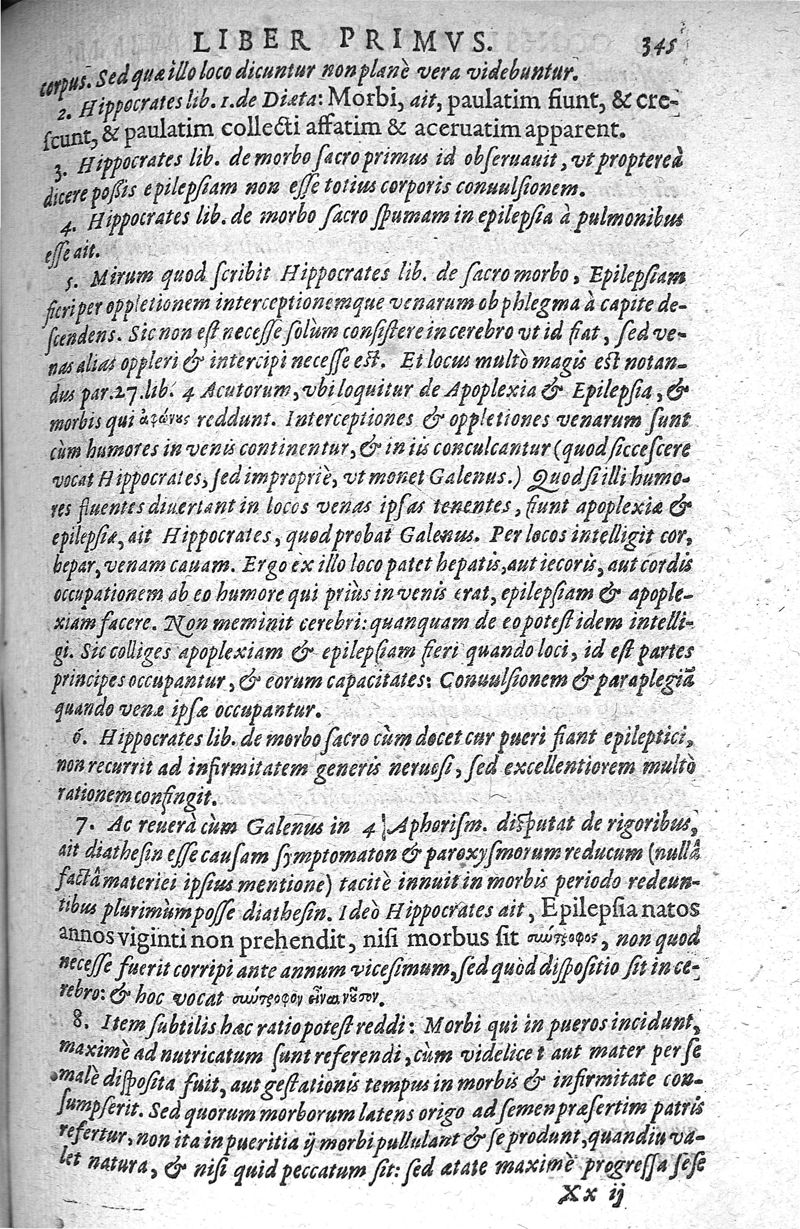 LIBER PRIMVS. 345
corpus. Sed quæ illo loco dicuntur non planè vera videbuntur.
2. Hippocrates lib. 1. de Diæta: Morbi, ait, paulatim fiunt, & cre-
ſcunt, & paulatim collecti affatim & aceruatim apparent.
3. Hippocrates lib. de morbo ſacro primus id obſeruauit, vt proptereà
dicere poſſis epilepſiam non eſſe totius corporis conuulſionem.
4. Hippocrates lib. de morbo ſacro ſpumam in epilepſia à pulmonibus
eſſe ait.
5. Mirum quod ſcribit Hippocrates lib. de ſacro morbo, Epilepſiam
fieri per oppletionem interceptionemque venarum ob phlegma à capite de-
ſcendens. Sic non eſt neceſſe ſolùm conſiſtere in cerebro vt id fiat, ſed ve-
nas alias oppleri & intercipi neceſſe eſt. Et locus multò magis eſt notan-
dus par. 27. lib. 4 Acutorum, vbi loquitur de Apoplexia & Epilepſia, &
morbis qui ἀφώνους reddunt. Interceptiones & oppletiones venarum ſunt
cùm humores in venis continentur, & in iis conculcantur (quod ſicceſcere
vocat Hippocrates, ſed impropriè, vt monet Galenus.) Quod ſi illi humo-
res fluentes diuertant in locos venas ipſas tenentes, fiunt apoplexiæ &
epilepſiæ, ait Hippocrates, quod probat Galenus. Per locos intelligit cor,
hepar, venam cauam. Ergo ex illo loco patet hepatis, aut iecoris, aut cordis
occupationem ab eo humore qui priùs in venis erat, epilepſiam & apople-
xiam facere. Non meminit cerebri: quanquam de eo poteſt idem intelli-
gi. Sic colliges apoplexiam & epilepſiam fieri quando loci, id eſt partes
principes occupantur, & eorum capacitates: Conuulſionem & paraplegiã
quando venæ ipſæ occupantur.
6. Hippocrates lib. de morbo ſacro cùm docet cur pueri fiant epileptici,
non recurrit ad infirmitatem generis neruoſi, ſed excellentiorem multò
rationem confingit.
7. Ac reuerà cùm Galenus in 4 Aphoriſm. diſputat de rigoribus,
ait diatheſin eſſe cauſam ſymptomaton & paroxyſmorum reducum (nullâ
factâ materiei ipſius mentione) tacitè innuit in morbis periodo redeun-
tibus plurimùm poſſe diatheſin. Ideò Hippocrates ait, Epilepſia natos
annos viginti non prehendit, niſi morbus ſit σύντροφος, non quod
neceſſe fuerit corripi ante annum viceſimum, ſed quòd diſpoſitio ſit in ce-
rebro: & hoc vocat σύντροφον εἶναι νοῦσον.
8. Item ſubtilis hæc ratio poteſt reddi: Morbi qui in pueros incidunt,
maximè ad nutricatum ſunt referendi, cùm videlicet aut mater per ſe
malè diſpoſita fuit, aut geſtationis tempus in morbis & infirmitate con-
ſumpſerit. Sed quorum morborum latens origo ad ſemen præſertim patris
refertur, non ita in pueritia ij morbi pullulant & ſe produnt, quandiu va-
let natura, & niſi quid peccatum ſit: ſed ætate maximè progreſſa ſeſe
Xx ij